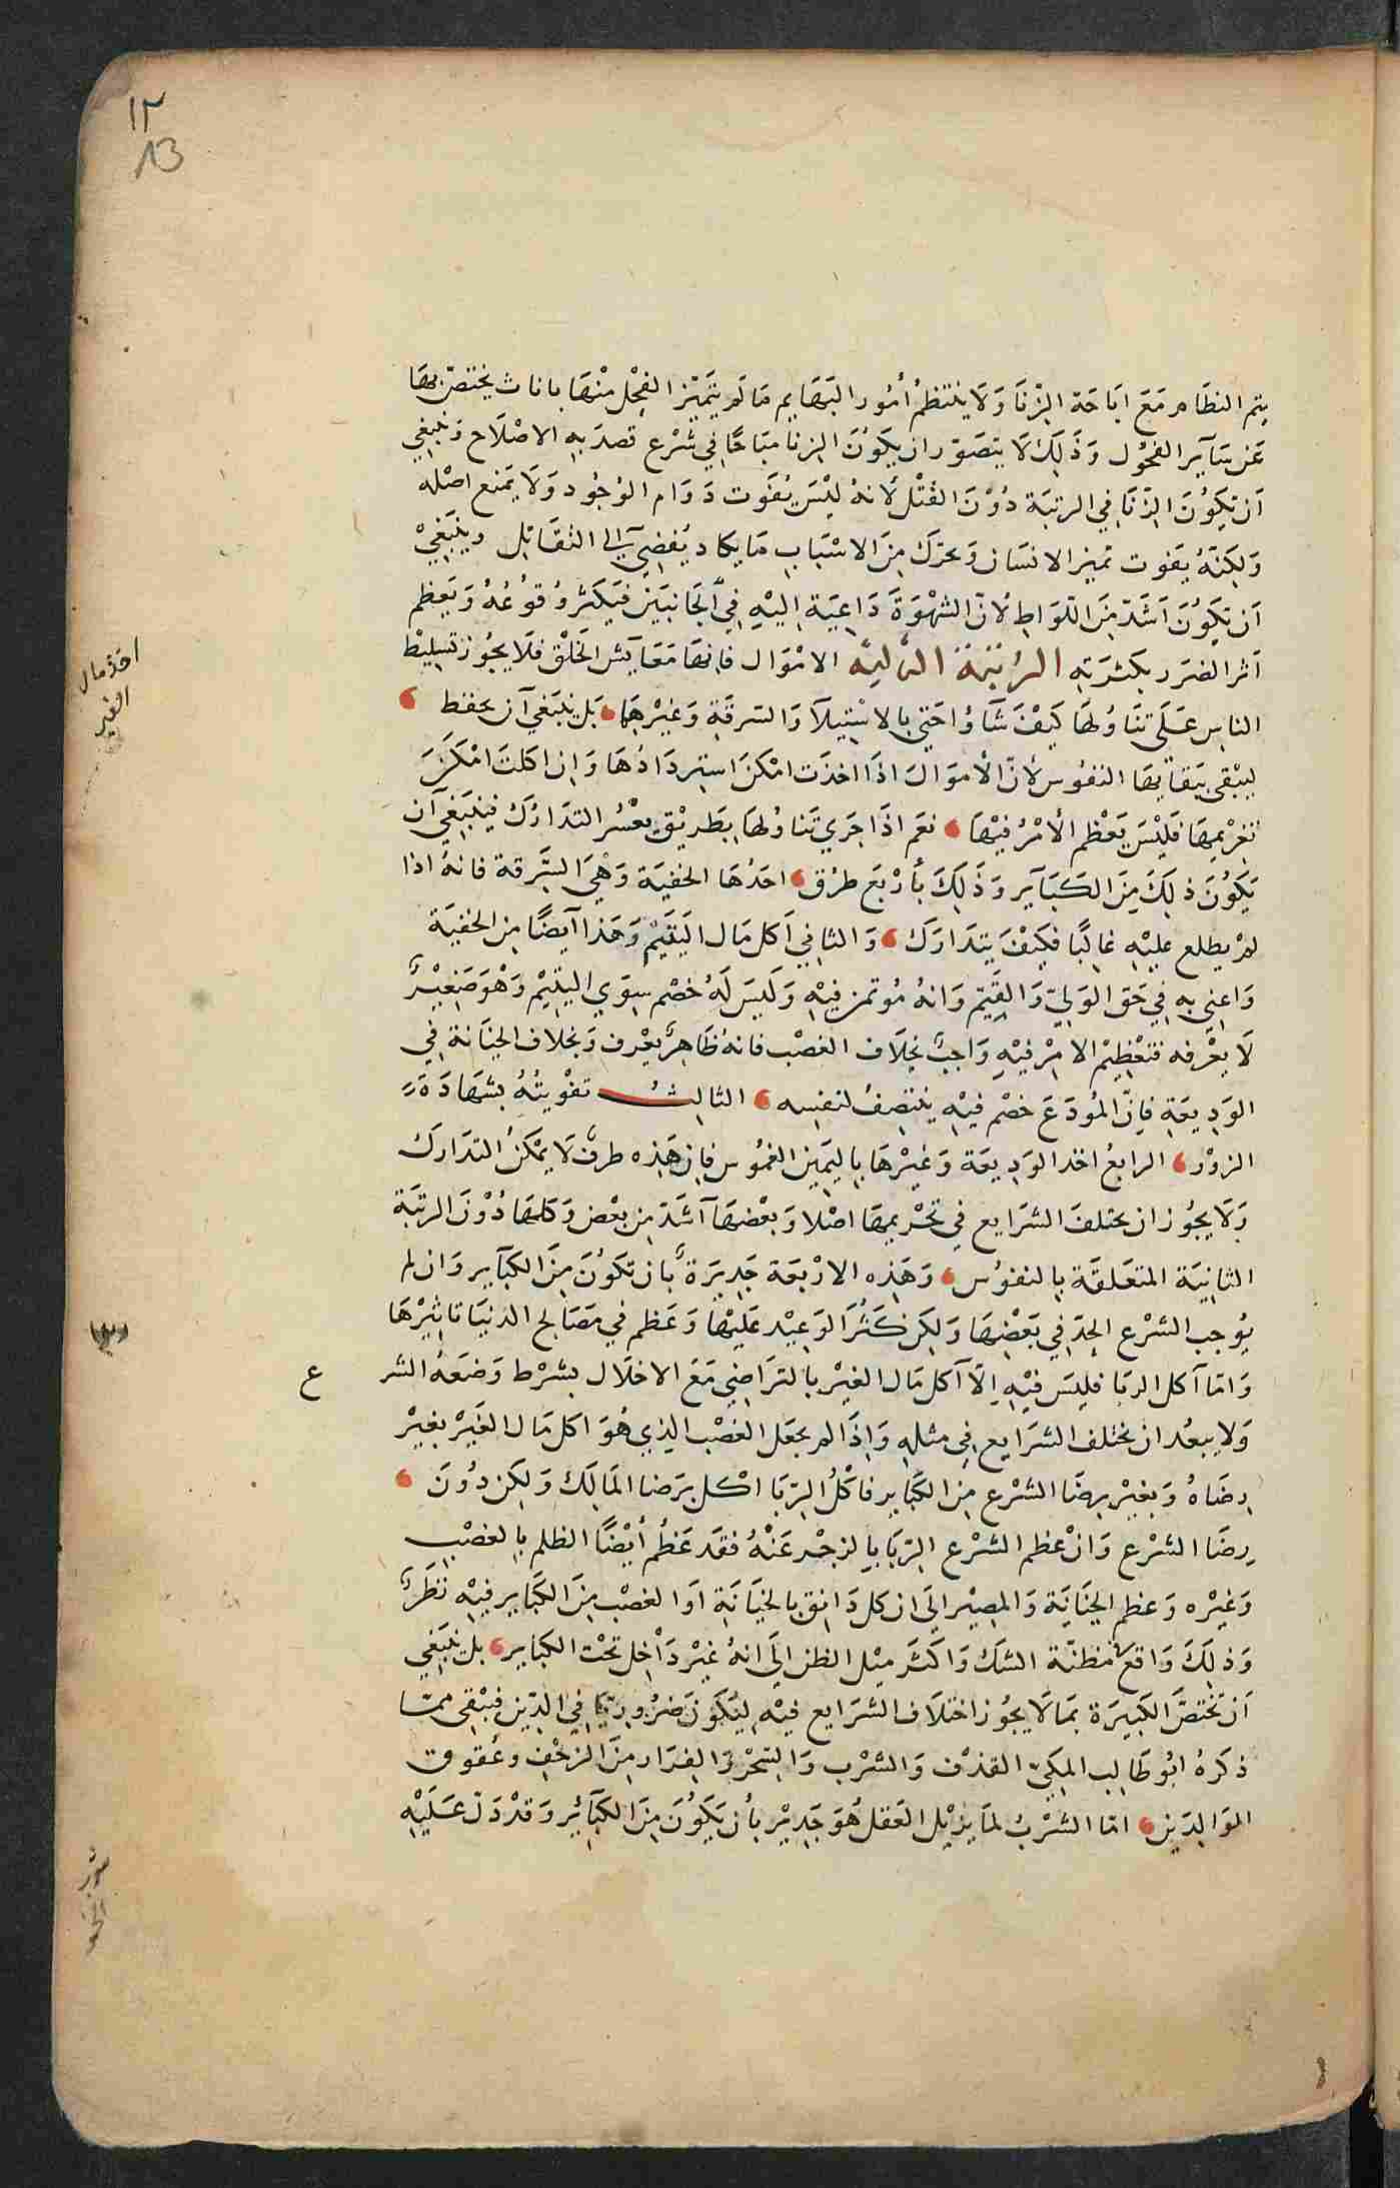 ١٢
13
يتم النظام مَعَ ابَاحَة الزنَا وَلَا ينتظمُ أمُور البَهَايم مَا لَم يتَمَيّز الفِحْل منْهَا باناث يختصّ بهَا
عَن سَآير الفحُول وَذَلِكَ لَا يتصَوّر ان يكوُنَ الزنا مبَاحًا في شرْع قصدَ بهِ الاصْلَاح وَينبغِي
اَن يَكوُنَ الزّنَا في الرتبَة دُوْنَ القَتْل لأنهُ ليْسَ يُفَوت دَوَام الوُجُود وَلَا يمَنع اصْله
وَلكِنّهُ يفَوت تميز الانسَان وَيحَرّك مِنَ الاسْبَابِ مَا يكاد يُفضِي الى التقَاتِل وينبَغِيْ
اَن يَكوُنَ اَشَدّ مِنَ اللّوَاطِ لأنّ الشهْوَةَ دَاعِيَة اِليْهِ فِي الجَانبَيَنْ فيَكثر وُقوُعُهُ وَيَعظم
اَثر الضرَر بكثرَتهِ الرُتبَة الثالثَه الامْوَال فانهَا مَعَايِش الخَلْق فلَا يجُوز تسليْط
الناسِ عَلَى تنَاوُلهَا كَيْفَ شَآؤا حَتى بالاسْتِيلآ وَالسَرقَةِ وَغيْرهَمَا بَل ينبَغي اَن يحفظ
ليبْقى ببَقآيهَا النفُوس لأنّ الأموَالَ اذَا اخذت امْكنَ استِردَادُهَا وَان اكلتَ امْكَنَ
تغرْيمهَا فَليْسَ يَعْظم الأمْرُ فيْهَا نعَم اذَا جَري تَناوُلهَا بِطَريْق يعْسُر التدَارُك فينبَغِي اَن
يَكوُنَ ذلِكَ مِنَ الكَبَآير وَذَلِكَ بأرْبَع طرُق احَدُهَا الخفيَة وَهْيَ السَّرقة فانهُ اذا
لمْ يطلع عليْهِ غالبًا فكيْفَ يتدَارَك وَالثاني اَكل مَال اليَتيْمْ وَهَذا اَيضًا مِن الخفيَة
وَاعني بهِ فِي حَق الوَلِيّ وَالقيّم وَانهُ مُوتمن فيْهِ وَليَسَ لَهُ خصْم سِوَي اليتيْمِ وَهْوَ صَغيْرٌ
لَا يعْرفه فتعْظيْم الامْر فيْهِ وَاجبٌ بخِلَاف الغصْب فانهُ ظاهِرٌ يعْرف وَبخلاف الخيَانة في
الوَدِيعَةِ فاِنّ المُودَعَ خصْم فيْهِ ينتصِفُ لنفسِه الثالِثُ تفْويتُهُ بشهَادَة
الزوْر الرابعُ اخذ الوَدِيعَة وَغيْرهَا باليمَين الغمُوس فاِن هَذِه طرق لَا يمْكنُ التدَارك
وَلَا يجُوز ان يختلفَ الشرَايع في تحْريمهَا اصْلا وَبعْضهَا اَشَدّ مِن بعْض وَكلهَا دُوْنَ الرتبَة
الثانيَة المتعَلقَّة بالنفوُس وَهَذِه الارْبَعَة جَدِيرَةٌ بان تكوُنَ مِنَ الكبَآير وَان لم
يوُجب الشرْع الحدّ في بَعْضِهَا وَلكِن كَثُر الوَعيْد عَليْهَا وَعَظم في مَصَالح الدنيَا تاثيْرْهَا
وَامّا اَكل الربَا فليسَ فيْهِ اِلّا آكل مَال الغيْر بالترَاضِي مَعَ الاخلَال بشرْط وَضعَهُ الشر
ع
وَلا يبعُد ان يختلف الشرَايع فِي مثلهِ وَاِذَا لم يجعَل الغصْب الذِي هُوَ اكل مَال الغَيْر بغيْر
رضَاهُ وَبغيْر رضَا الشرْع مِن الكبَاير فاكْلُ الرّبَا اكل برَضا المَالِك وَلكِن دُونَ
رِضَا الشرْع وَانْ عَظم الشرْع الرّبَا بالزجْر عَنْهُ فقَد عَظُم أيْضًا الظلم بالغصْبِ
وَغيْره وَعظم الخيَانة وَالمصِيْر الَى ان كل دَانق بالخيَانَةِ اَو الغصْب مِنَ الكبَاير فيْهِ نَظرٌ
وَذلِكَ وَاقع مظنّة الشك وَاكثر ميْل الظن الَى انهُ غيْر دَاْخِل تحْت الكبَاير بل ينبَغي
اَن تختصَّ الكَبيَرَة بمَا لَا يجُوز اختلَاف الشرَايع فيْهِ ليَكوُنَ ضرُوريًّا فِي الدّين فيبْقى ممّا
ذكَرهُ ابُو طَالِب المَكيّ القذف وَالشرْب وَالسّحْر وَالفِرَار مِنَ الزحْفِ وعُقوق
الوَالدَين امّا الشرْبُ لمَا يزيْل العَقل هُوَ جَدِيْر بأن يَكوُنَ مِنَ الكبَآئر وَقدْ دَلّ عَلَيْهِ
اخذ مال
الغير
شرب
الخمر